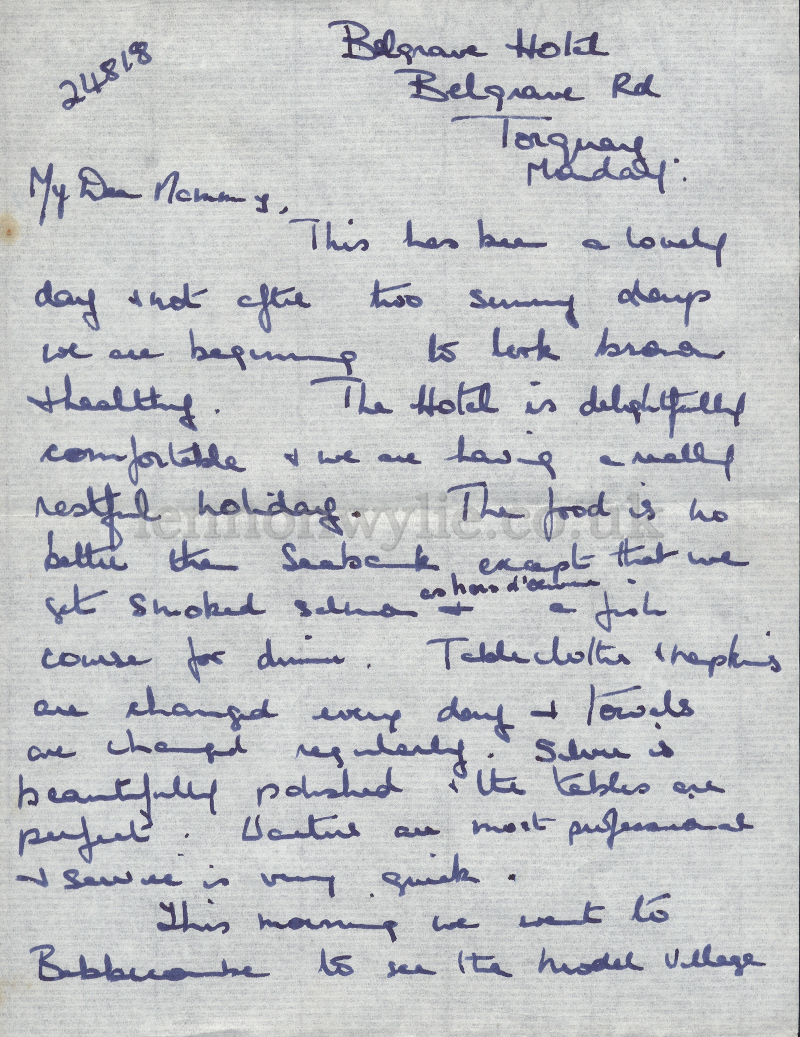 Belgrave Hotel
24818
Belgrave Rd
Torquay
Monday.
My Dear Mammy,
This has been a lovely
day & hot after two sunny days
we are beginning to look brown
& healthy. The Hotel is delightfully
comfortable & we are having a really
restful holiday. The food is no
lermonwylie.co.uk
better than Seabank except that we
as hors d'oeuvre
get smoked salmon & a fish
course for dinner. Tablecloths & napkins
are changed every day & Towels
are changed regularly. Silver is
beautifully polished & the tables are
perfect. Waiters are most professional
& service is very quick.
This morning we went to
Babbacombe to see the model village